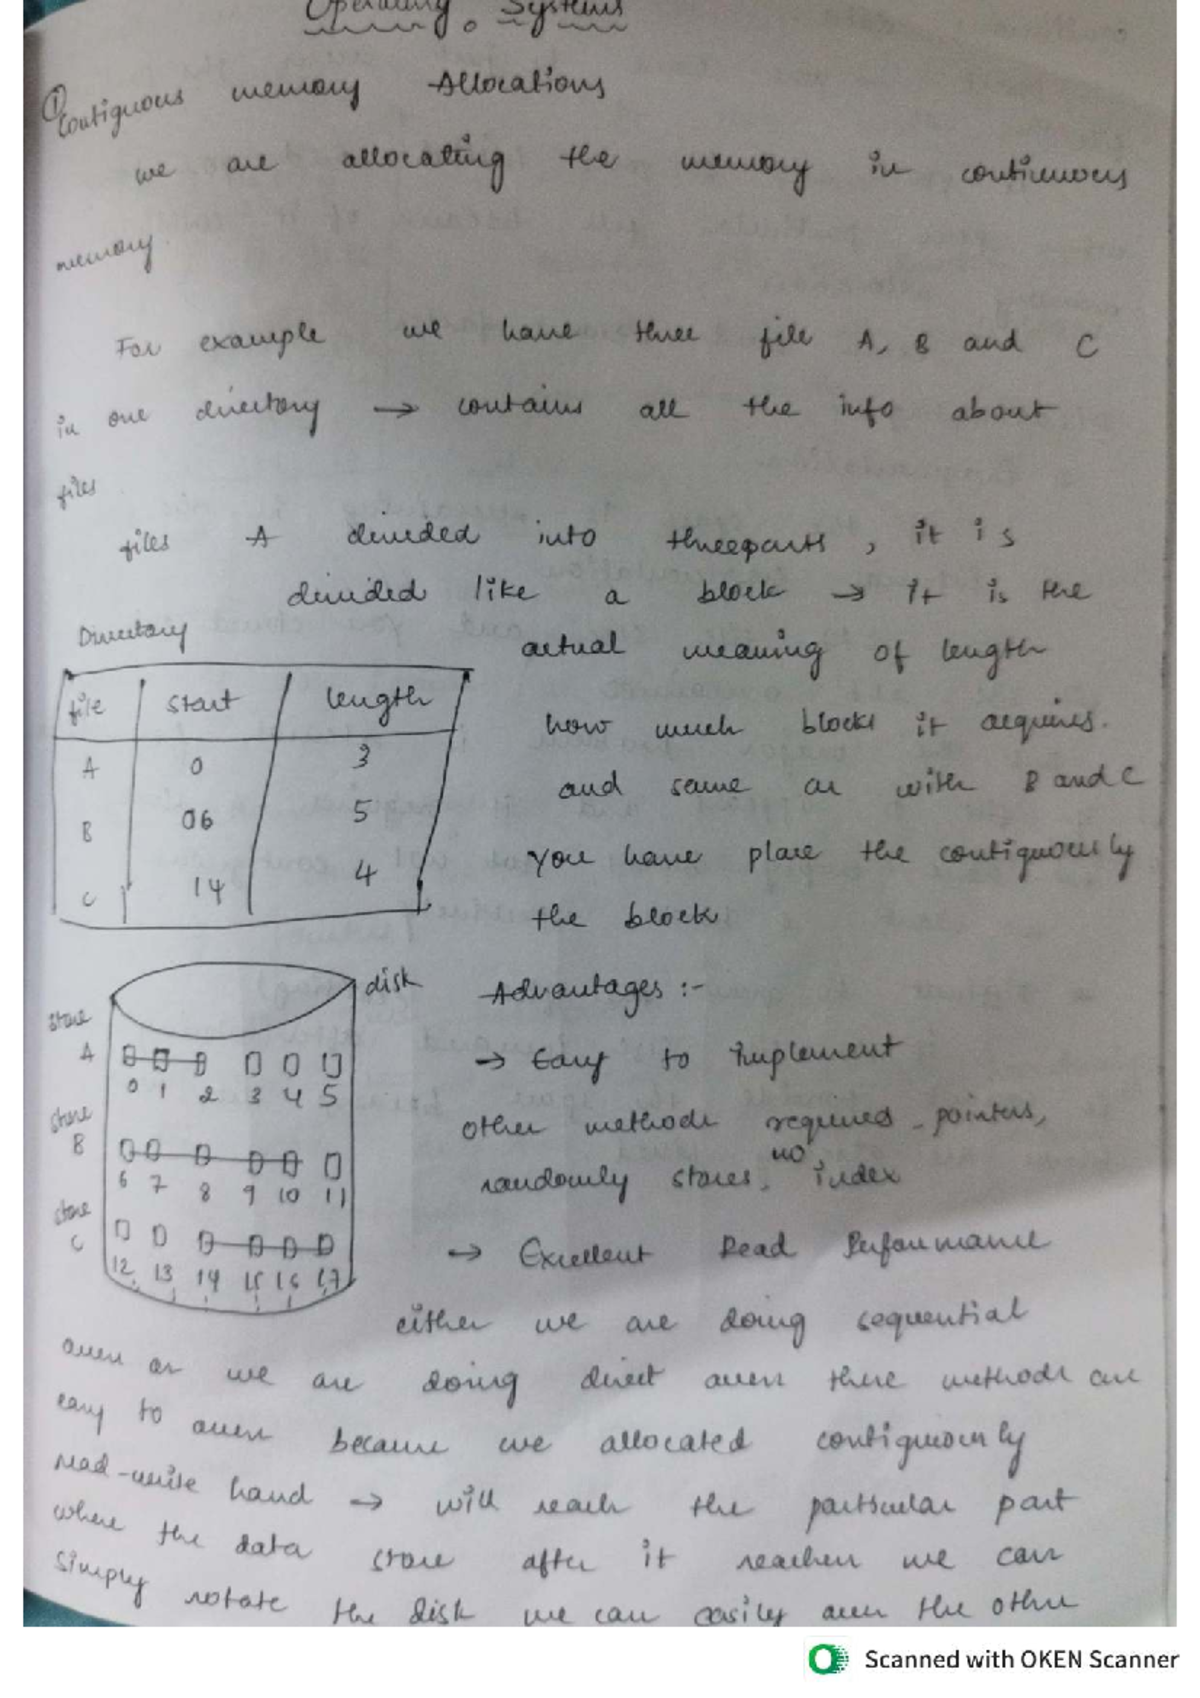 Operating Systems
① Contiguous memory Allocations
we are allocating the memory in contiennous
memory.
For example we have three file A, B and C
in one directory → contains all the info about
files
files A divided into threeparts, it is
divided like a block → it is the
actual meaning of length
how much blocks it acquires.
and same as with B and C
you have place the contiguously
the block
Directory
file start length
A 0 3
B 06 5
C 14 4
disk
store
A
0 1 2 3 4 5
store
B
6 7 8 9 10 11
store
C
12 13 14 15 16 17
Advantages :-
→ Easy to implement
other methods required pointers,
randomly stores, no index
→ Excellent Read Performance
either we are doing sequential
access or we are doing direct access these methods are
easy to access because we allocated contiguously
read-write hand → will reach the particular part
where the data store after it reaches we can
simply rotate the disk we can easily access the other
Scanned with OKEN Scanner